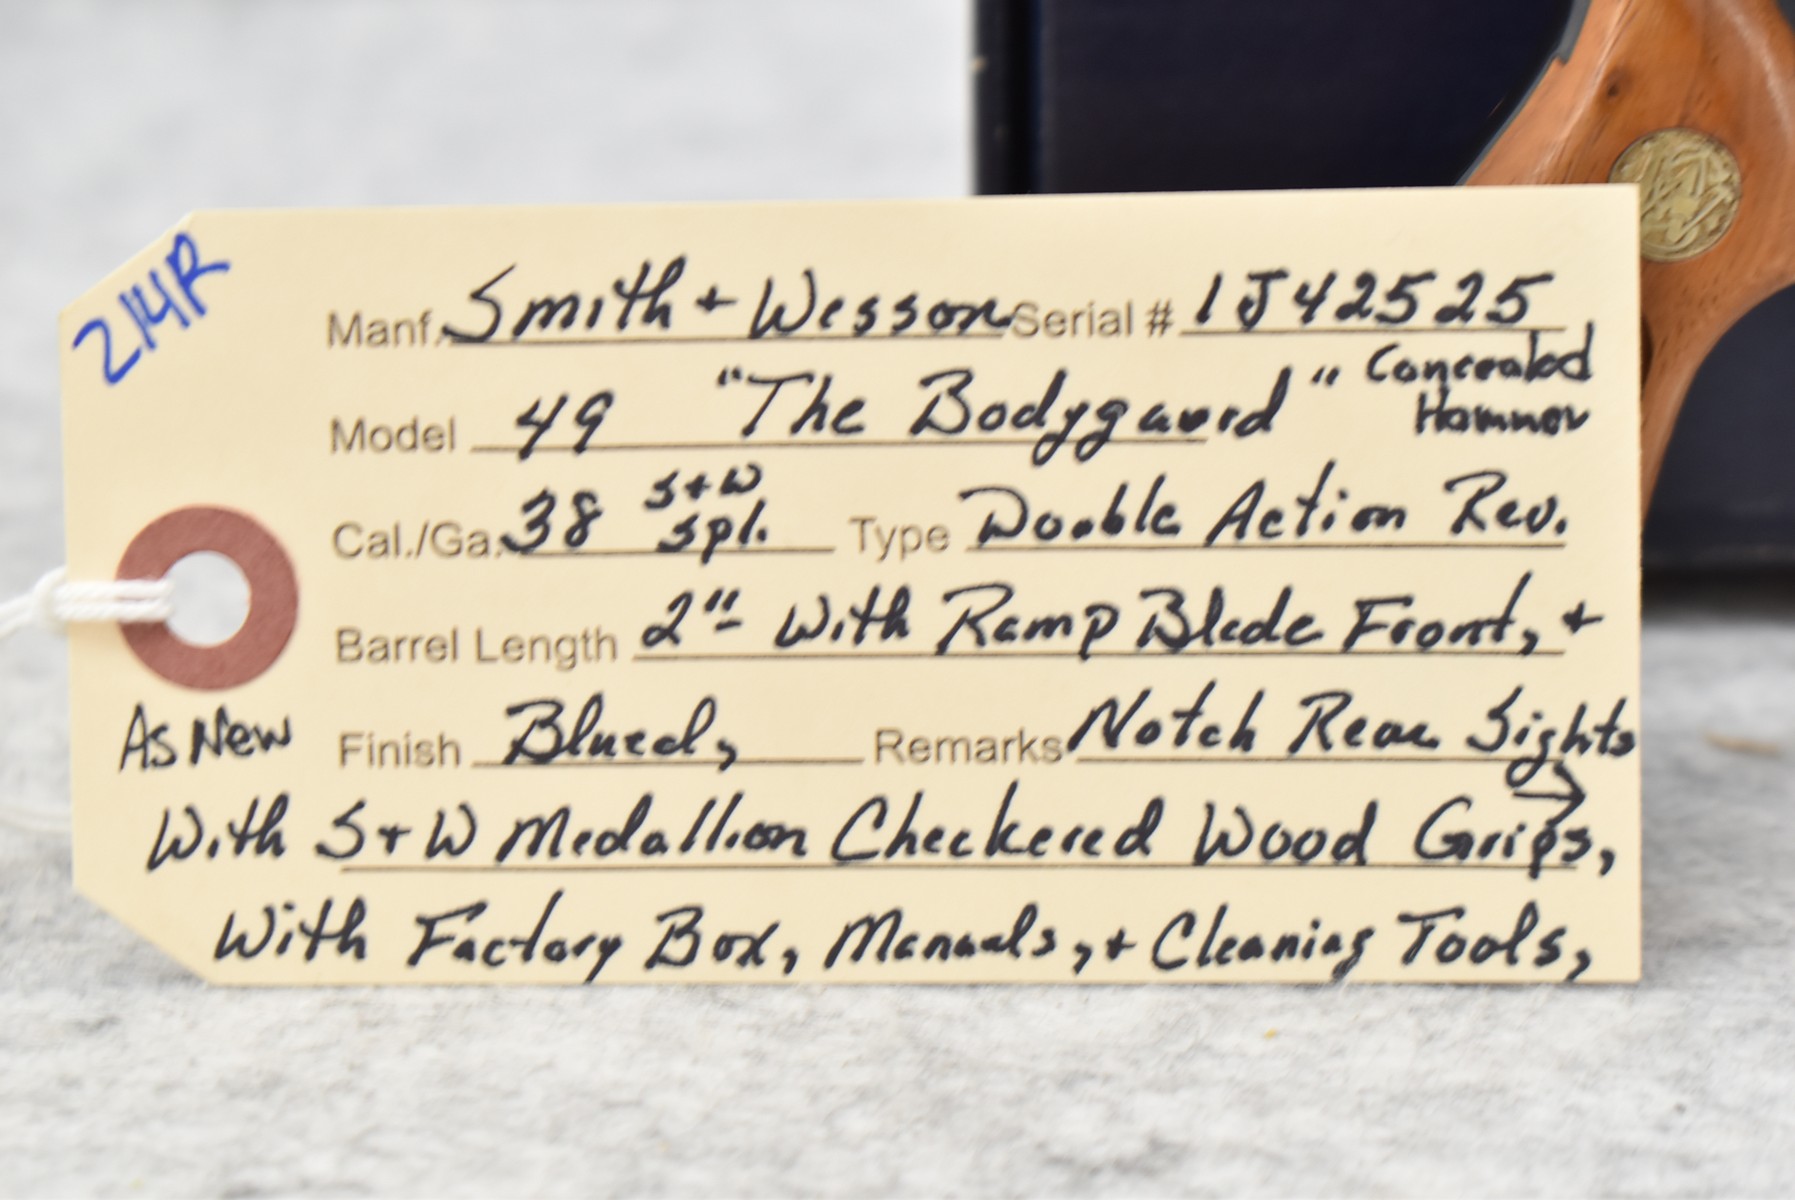 214R
Manf. Smith + Wesson Serial # 1J42525
Model 49 "The Bodygaurd" Concealed Hammer
Cal./Ga. 38 S+W Spl. Type Double Action Rev.
Barrel Length 2" With Ramp Blade Front, +
As New
Finish Blued, Remarks Notch Rear Sights
With S+W Medallion Checkered Wood Grips,
With Factory Box, Manuals, + Cleaning Tools,